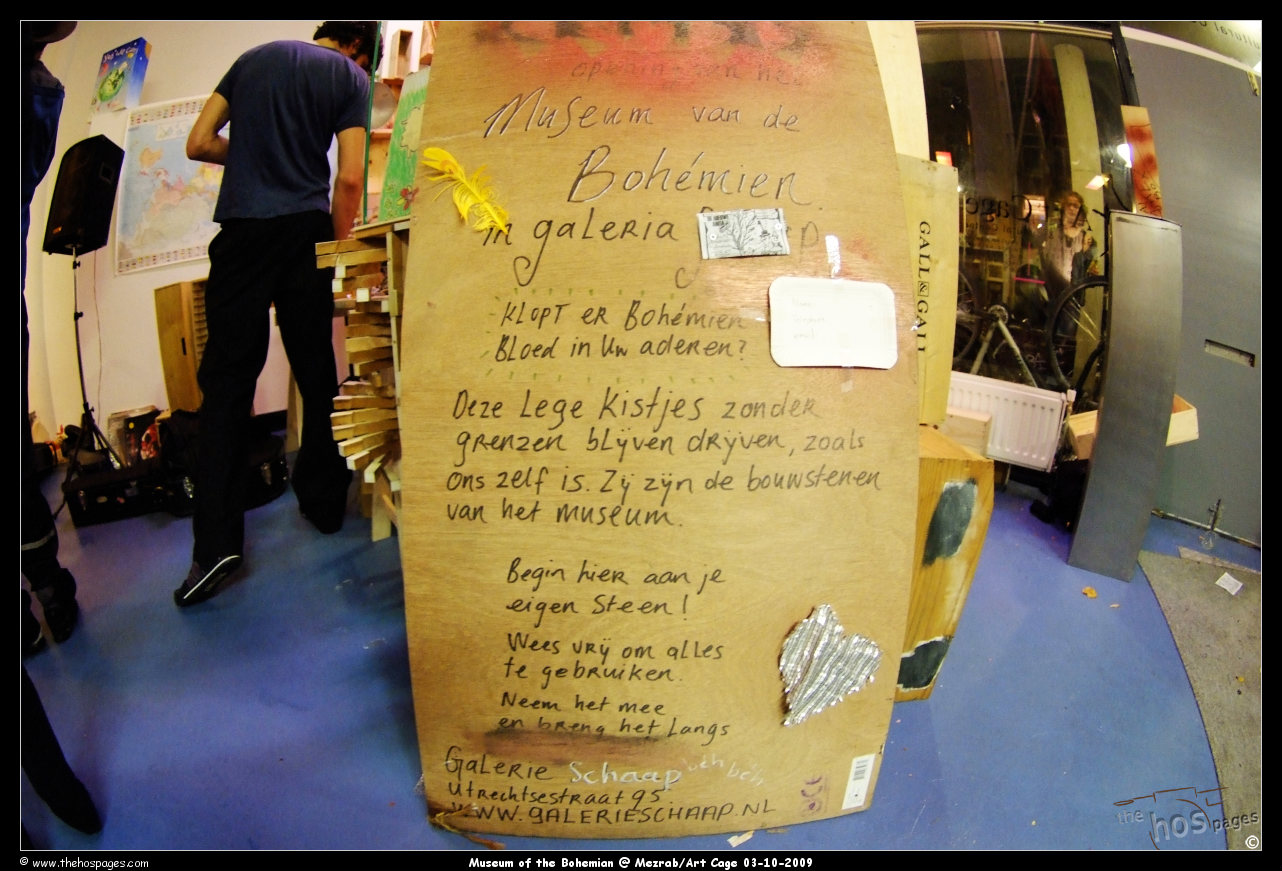 Museum van de
Bohémien.
in galeria
KLOPT ER Bohémien
Bloed in Uw aderen?
Deze Lege Kistjes zonder
grenzen blijven drijven, zoals
ons zelf is. Zij zijn de bouwstenen
van het museum.
Begin hier aan je
eigen Steen!
Wees vrij om alles
te gebruiken.
Neem het mee
en breng het Langs
Galerie Schaap
Utrechtsestraat 95
WWW.GALERIESCHAAP.NL
GALL&GALL
the hos pages
©
© www.thehospages.com
Museum of the Bohemian @ Mezrab/Art Cage 03-10-2009